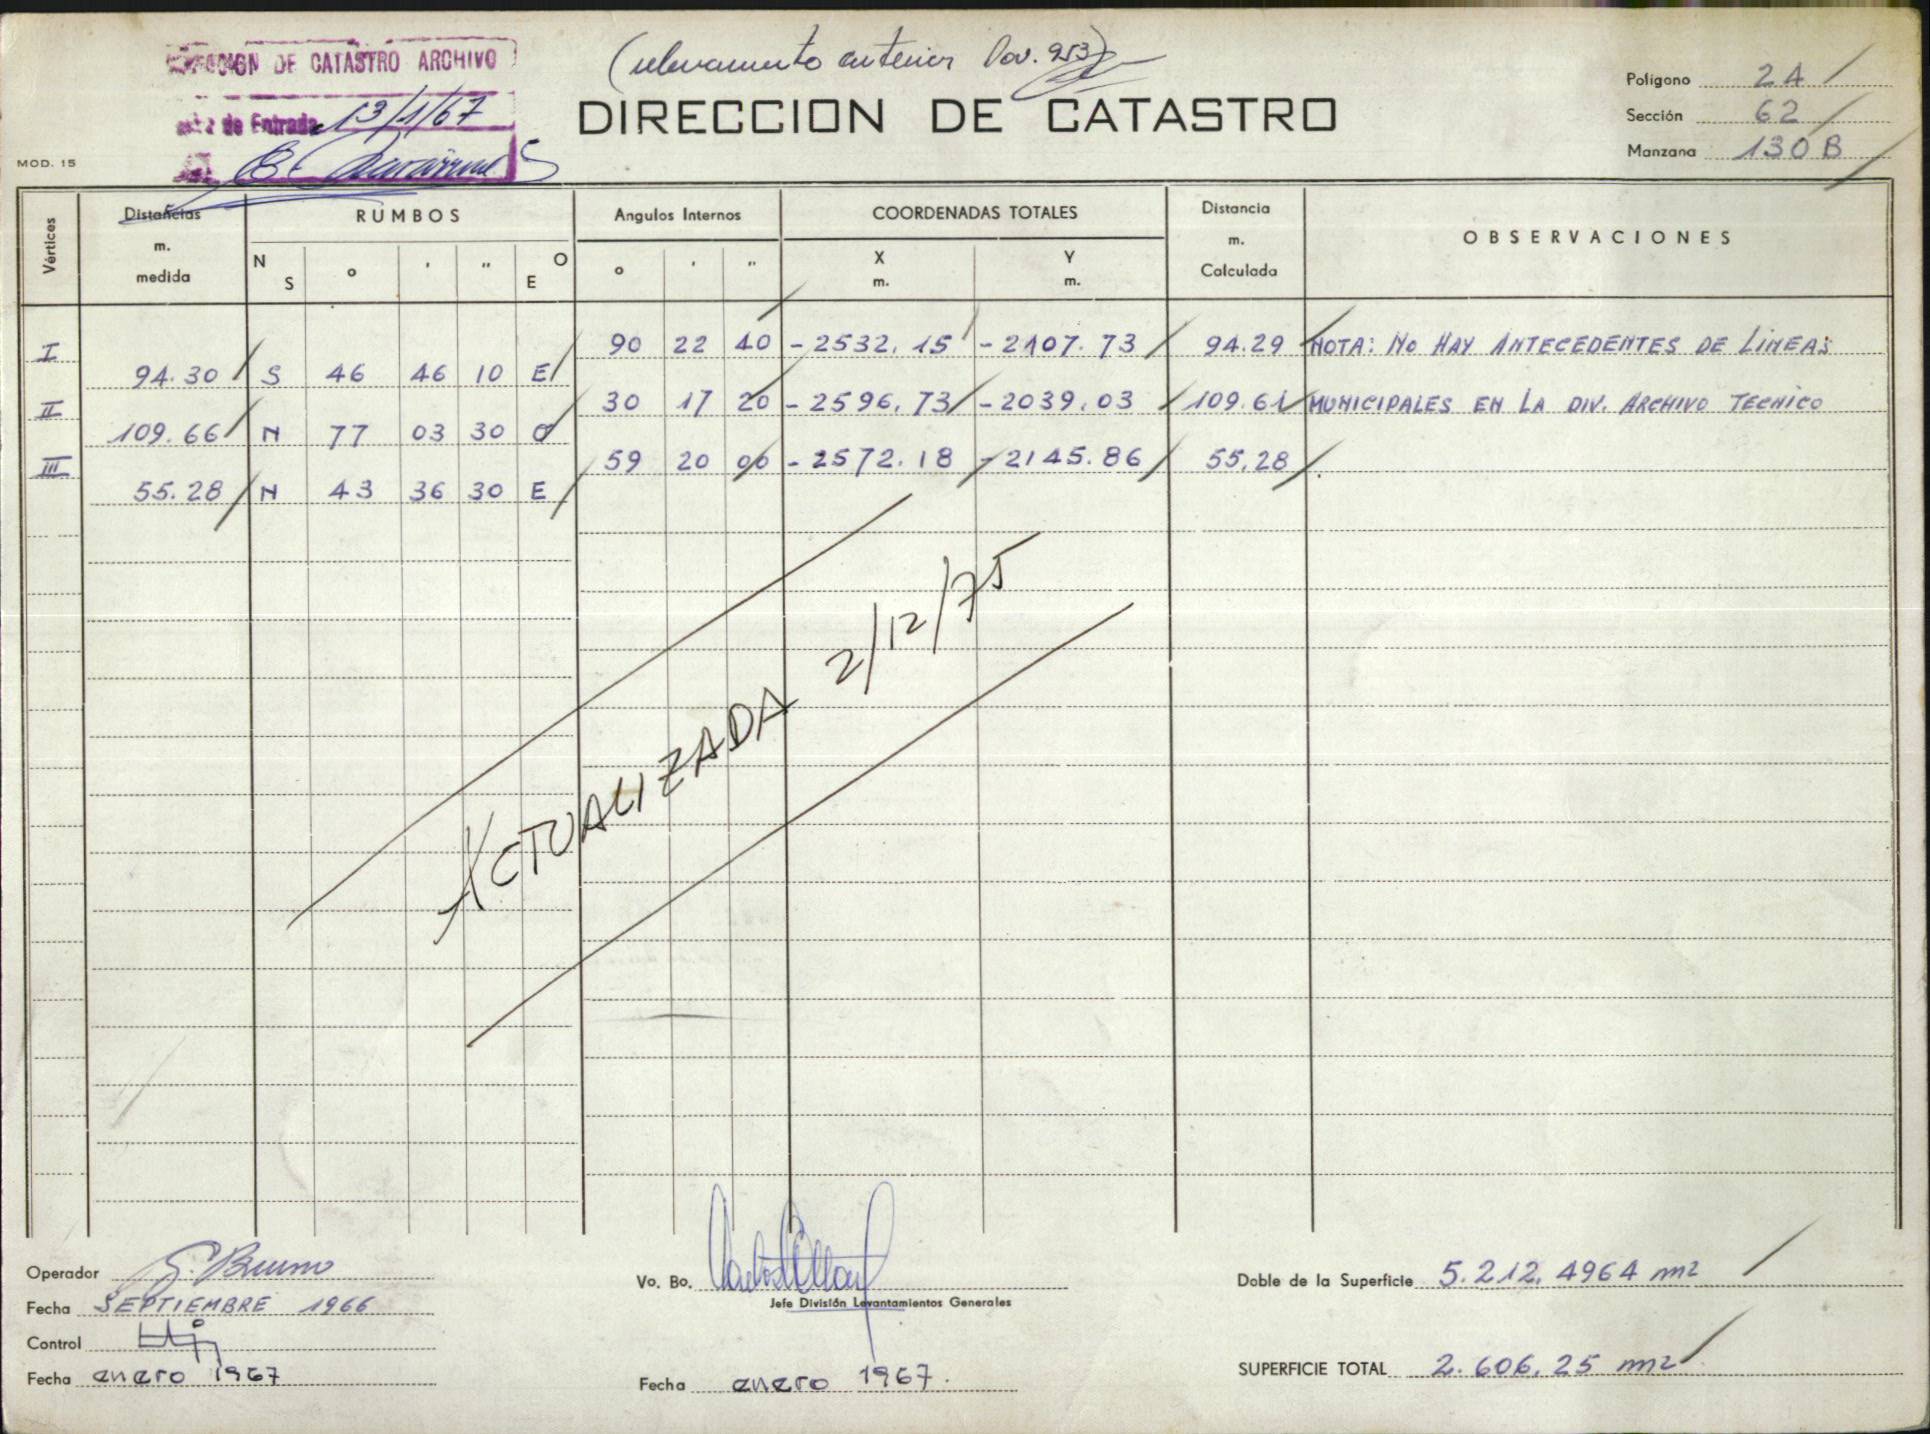 DE CATASTRO ARCHIVO
de Entrada 13/1/67
(relevamiento anterior Pov. 253)
DIRECCION DE CATASTRO
Polígono 24
Sección 62
Manzana 130 B
MOD. 15
Vértices
Distancias m. medida
RUMBOS
N S ° ' " O E
Angulos Internos
° ' "
COORDENADAS TOTALES
X m. Y m.
Distancia m. Calculada
OBSERVACIONES
I 90 22 40 -2532.15 -2107.73 94.29 NOTA: No HAY ANTECEDENTES DE LINEAS
94.30 S 46 46 10 E
II 30 17 20 -2596.73 -2039.03 109.61 MUNICIPALES EN LA DIV. ARCHIVO TECNICO
109.66 N 77 03 30 O
III 59 20 00 -2572.18 -2145.86 55.28
55.28 N 43 36 30 E
ACTUALIZADA 2/12/75
Operador G. Bruno
Fecha SEPTIEMBRE 1966
Control
Fecha enero 1967
Vo. Bo.
Jefe División Levantamientos Generales
Fecha enero 1967.
Doble de la Superficie 5.212.4964 m2
SUPERFICIE TOTAL 2.606.25 m2